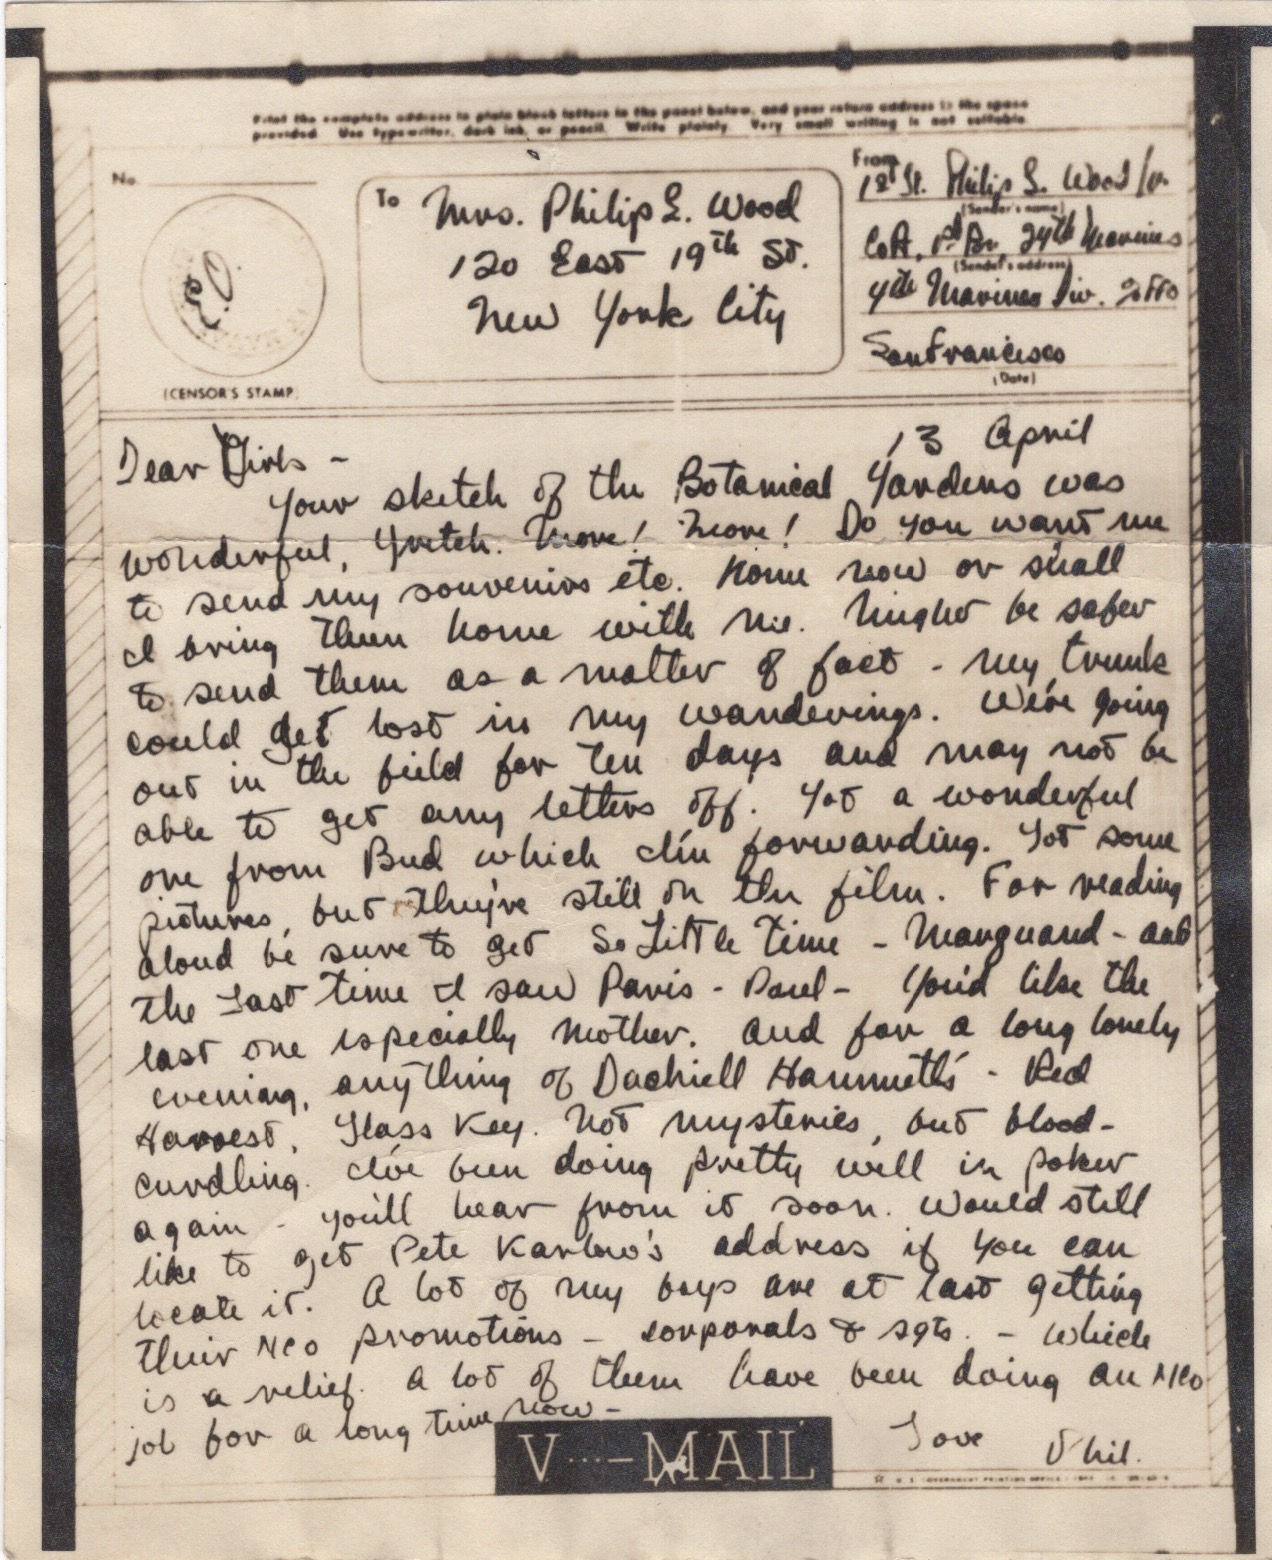 Print the complete address in plain block letters in the panel below, and your return address in the space
provided. Use typewriter, dark ink, or pencil. Write plainly. Very small writing is not suitable.
No.
(CENSOR'S STAMP)
To
Mrs. Philip E. Wood
120 East 19th St.
New York City
From
1st Lt. Philip E. Wood Jr.
(Sender's name)
Co A, 1st Bn 24th Marines
(Sender's address)
4th Marine Div. % FPO
San Francisco
(Date)
13 April
Dear Girls -
Your sketch of the Botanical Gardens was
wonderful, Gretch. More! More! Do you want me
to send my souvenirs etc. home now or shall
I bring them home with me. Might be safer
to send them as a matter of fact - my trunk
could get lost in my wanderings. We're going
out in the field for ten days and may not be
able to get any letters off. Got a wonderful
one from Bud which I'm forwarding. Got some
pictures, but they're still on the film. For reading
aloud be sure to get So Little Time - Marquand - and
The Last Time I Saw Paris - Paul - You'd like the
last one especially Mother. And for a long lonely
evening, anything of Dashiell Hammett's - Red
Harvest, Glass Key. Not mysteries, but blood-
curdling. I've been doing pretty well in poker
again - you'll hear from it soon. Would still
like to get Pete Karlow's address if you can
locate it. A lot of my boys are at last getting
their NCO promotions - corporals & sgts. - which
is a relief. A lot of them have been doing an NCO
job for a long time now -
Love Phil.
V···—MAIL